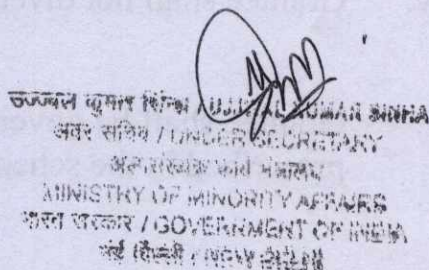 उज्जवल कुमार सिन्हा / UJJWAL KUMAR SINHA
अवर सचिव / UNDER SECRETARY
मंत्रालय
MINISTRY OF MINORITY AFFAIRS
भारत सरकार / GOVERNMENT OF INDIA
नई दिल्ली / NEW DELHI